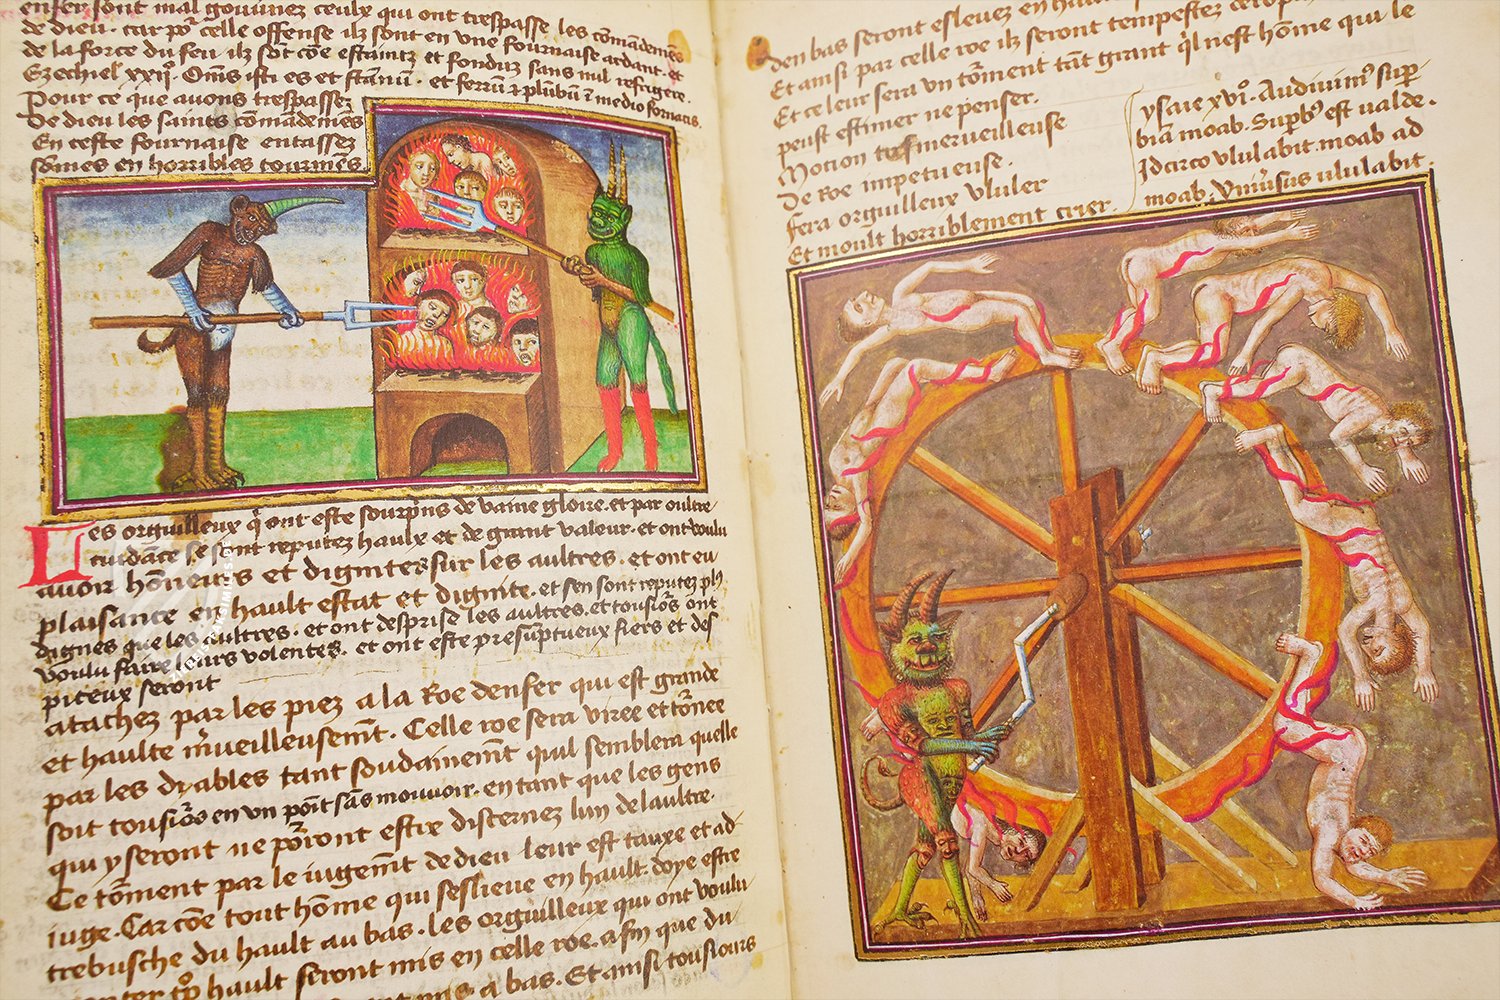 enfer sont mal gouvnez ceulx qui ont trespasse les cōmādemēs
de dieu. car po᷑ celle offense ilz sont en vne fournaise ardant. et
de la force du feu ilz sōt cōe estaintz et fonduz sans nul refrigere.
Ezechiel xxii°. Om̄s isti es et stannū. et ferrū & plūbū ī medio fornacis.
Pour ce que auons trespassez
De dieu les saints cōmādemēs
En ceste fournaise entassez
sōmes en horribles tourmēs
Les orguilleux q̄ ont este sourprīs de vaine gloire. et par oultre
cuidāce se sont reputez haulx et de grant valeur. et ont voulu
auoir hōneurs et dignites sur les aultres. et ont eu
plaisance en hault estat et dignite. et sen sont reputez pl᷒
dignes que les aultres. et ont desprise les aultres. et tousio᷑s ont
voulu faire leurs volentes. et ont este presūptueux fiers et des
piteux seront
atachez par les piez a la Roe denfer qui est grande
et haulte m̄ueilleusemēt. Celle roe sera viree et to᷑nee
par les dyables tant soudainemēt quil semblera quelle
soit tousio᷑s en vn poīt sās mouuoir. en tant que les gens
qui y seront ne po᷑ront estre discernez lun de laultre.
Ce to᷑ment par le iugemēt de dieu leur est tauxe et ad
iuge. Car cōe tout hōme qui seslieue en hault. doye estre
trebusche du hault au bas. les orguilleux qui ont voulu
monter tp̄ hault seront mis en celle roe. afin que du
mis a bas. Et ainsi tousiours
den bas seront esleuez en hault
Et ainsi par celle roe ilz seront tempestez
Et ce leur sera vn to᷑ment tāt grant q̄l nest hōme qui le
peust estimer ne penser.
Motion tresmerueilleuse
De Roe impetueuse.
fera orguilleux vluler
Et moult horriblement crier.
ysaie xvi°. Audiuim᷒ supr
biam moab. Supb᷒ est valde.
Idcirco vlulabit moab ad
moab. Vniūsus vlulabit.